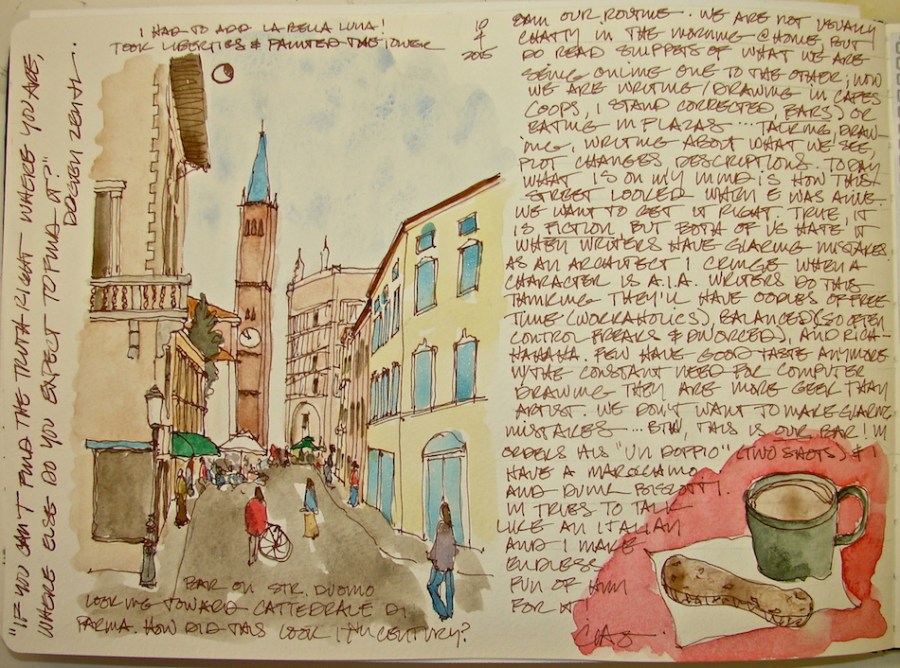 I HAD TO ADD LA BELLA LUNA!
TOOK LIBERTIES & PAINTED THE TOWER
10
4
2015
"IF YOU CAN'T FIND THE TRUTH RIGHT WHERE YOU ARE,
WHERE ELSE DO YOU EXPECT TO FIND IT?"
DOGEN ZENJI.
BAR ON STR. DUOMO
LOOKING TOWARD CATTEDRALE DI
PARMA. HOW DID THIS LOOK 17TH CENTURY?
OUR ROUTINE. WE ARE NOT USUALLY
CHATTY IN THE MORNING @ HOME, BUT
DO READ SNIPPETS OF WHAT WE ARE
SEEING ONLINE ONE TO THE OTHER; NOW
WE ARE WRITING/DRAWING IN CAFES
(OOPS, I STAND CORRECTED, BARS) OR
EATING IN PLAZAS ... TALKING, DRAW-
ING, WRITING ABOUT WHAT WE SEE,
PLOT CHANGES DESCRIPTIONS. TODAY
WHAT IS ON MY MIND IS HOW THIS
STREET LOOKED WHEN E WAS ALIVE.
WE WANT TO GET IT RIGHT. TRUE, IT
IS FICTION, BUT BOTH OF US HATE IT
WHEN WRITERS HAVE GLARING MISTAKES.
AS AN ARCHITECT I CRINGE WHEN A
CHARACTER IS A.I.A. WRITERS DO THIS
THINKING THEY'LL HAVE OODLES OF FREE
TIME (WORKAHOLICS), BALANCED (SO OFTEN
CONTROL FREAKS & DIVORCED), AND RICH-
HAHAHA. FEW HAVE GOOD TASTE ANYMORE
W/THE CONSTANT NEED FOR COMPUTER
DRAWING THEY ARE MORE GEEK THAN
ARTIST. WE DON'T WANT TO MAKE GLARING
MISTAKES ... BTW, THIS IS OUR BAR! M
ORDERS HIS "UN DOPPIO" (TWO SHOTS) & I
HAVE A MAROCCHINO
AND DUNK BISCOTTI.
M TRIES TO TALK
LIKE AN ITALIAN
AND I MAKE
ENDLESS
FUN OF HIM
FOR IT!